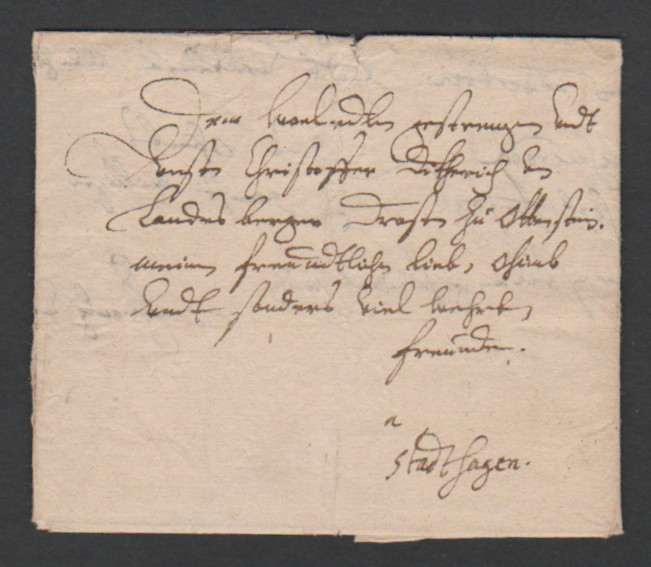 Dem woledlen gestrengen undt
Vensten Christoffer Ditherich von
Landesbergen Drosten zu Ottenstein.
meinem freundtlichen lieben Ohimb
Undt sonders viel wehrten
freunde.
a
Stadthagen.